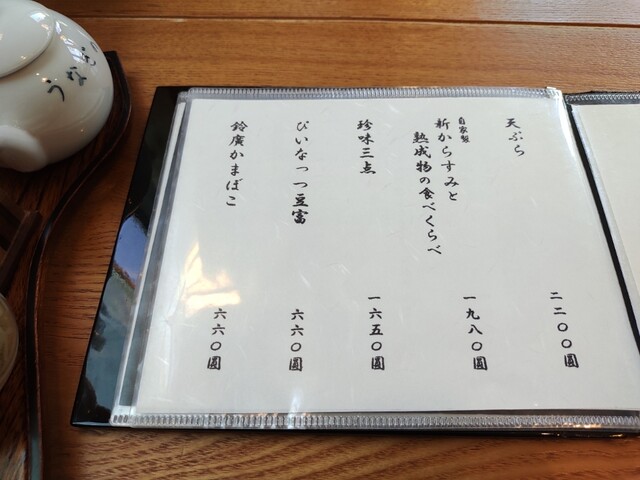 天ぷら
二二〇〇圓
自家製
新からすみと
熟成物の食べくらべ
一九八〇圓
珍味三点
一六五〇圓
ぴいなっつ豆富
六六〇圓
鈴廣かまぼこ
六六〇圓